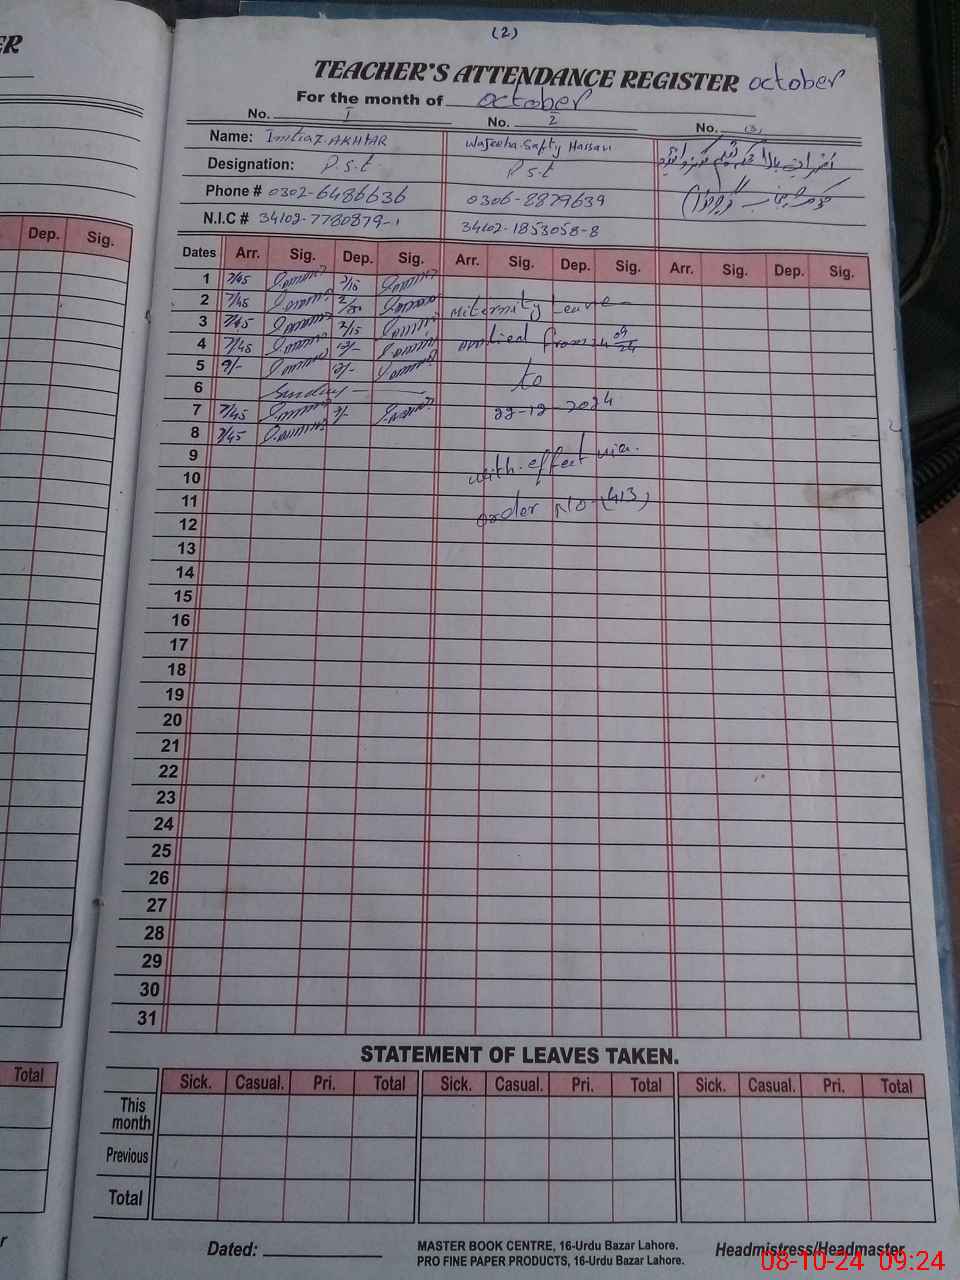 ER
(2)
TEACHER'S ATTENDANCE REGISTER october
For the month of october
No. 1 No. 2 No. (3)
Name: Imtiaz AKHTAR Wajeeha Safty Hassan
Designation: P.S.t P S t
Phone # 0302-6486636 0306-8879639
N.I.C # 34102-7780879-1 34102-1853058-8
Dep. Sig.
Dates Arr. Sig. Dep. Sig. Arr. Sig. Dep. Sig. Arr. Sig. Dep. Sig.
1 7/45 2/15
2 7/45 Miternity Leave
3 7/45 2/15
4 7/45 12/- applied from 24 09/24
5 9/- 2/- to
6 Sunday
7 7/45 2/- 22-12-2024
8 7/45
9 with effect via
10
11 order No (413)
12
13
14
15
16
17
18
19
20
21
22
23
24
25
26
27
28
29
30
31
STATEMENT OF LEAVES TAKEN.
Total
Sick. Casual. Pri. Total Sick. Casual. Pri. Total Sick. Casual. Pri. Total
This month
Previous
Total
Dated:
MASTER BOOK CENTRE, 16-Urdu Bazar Lahore.
PRO FINE PAPER PRODUCTS, 16-Urdu Bazar Lahore.
Headmistress/Headmaster
08-10-24 09:24